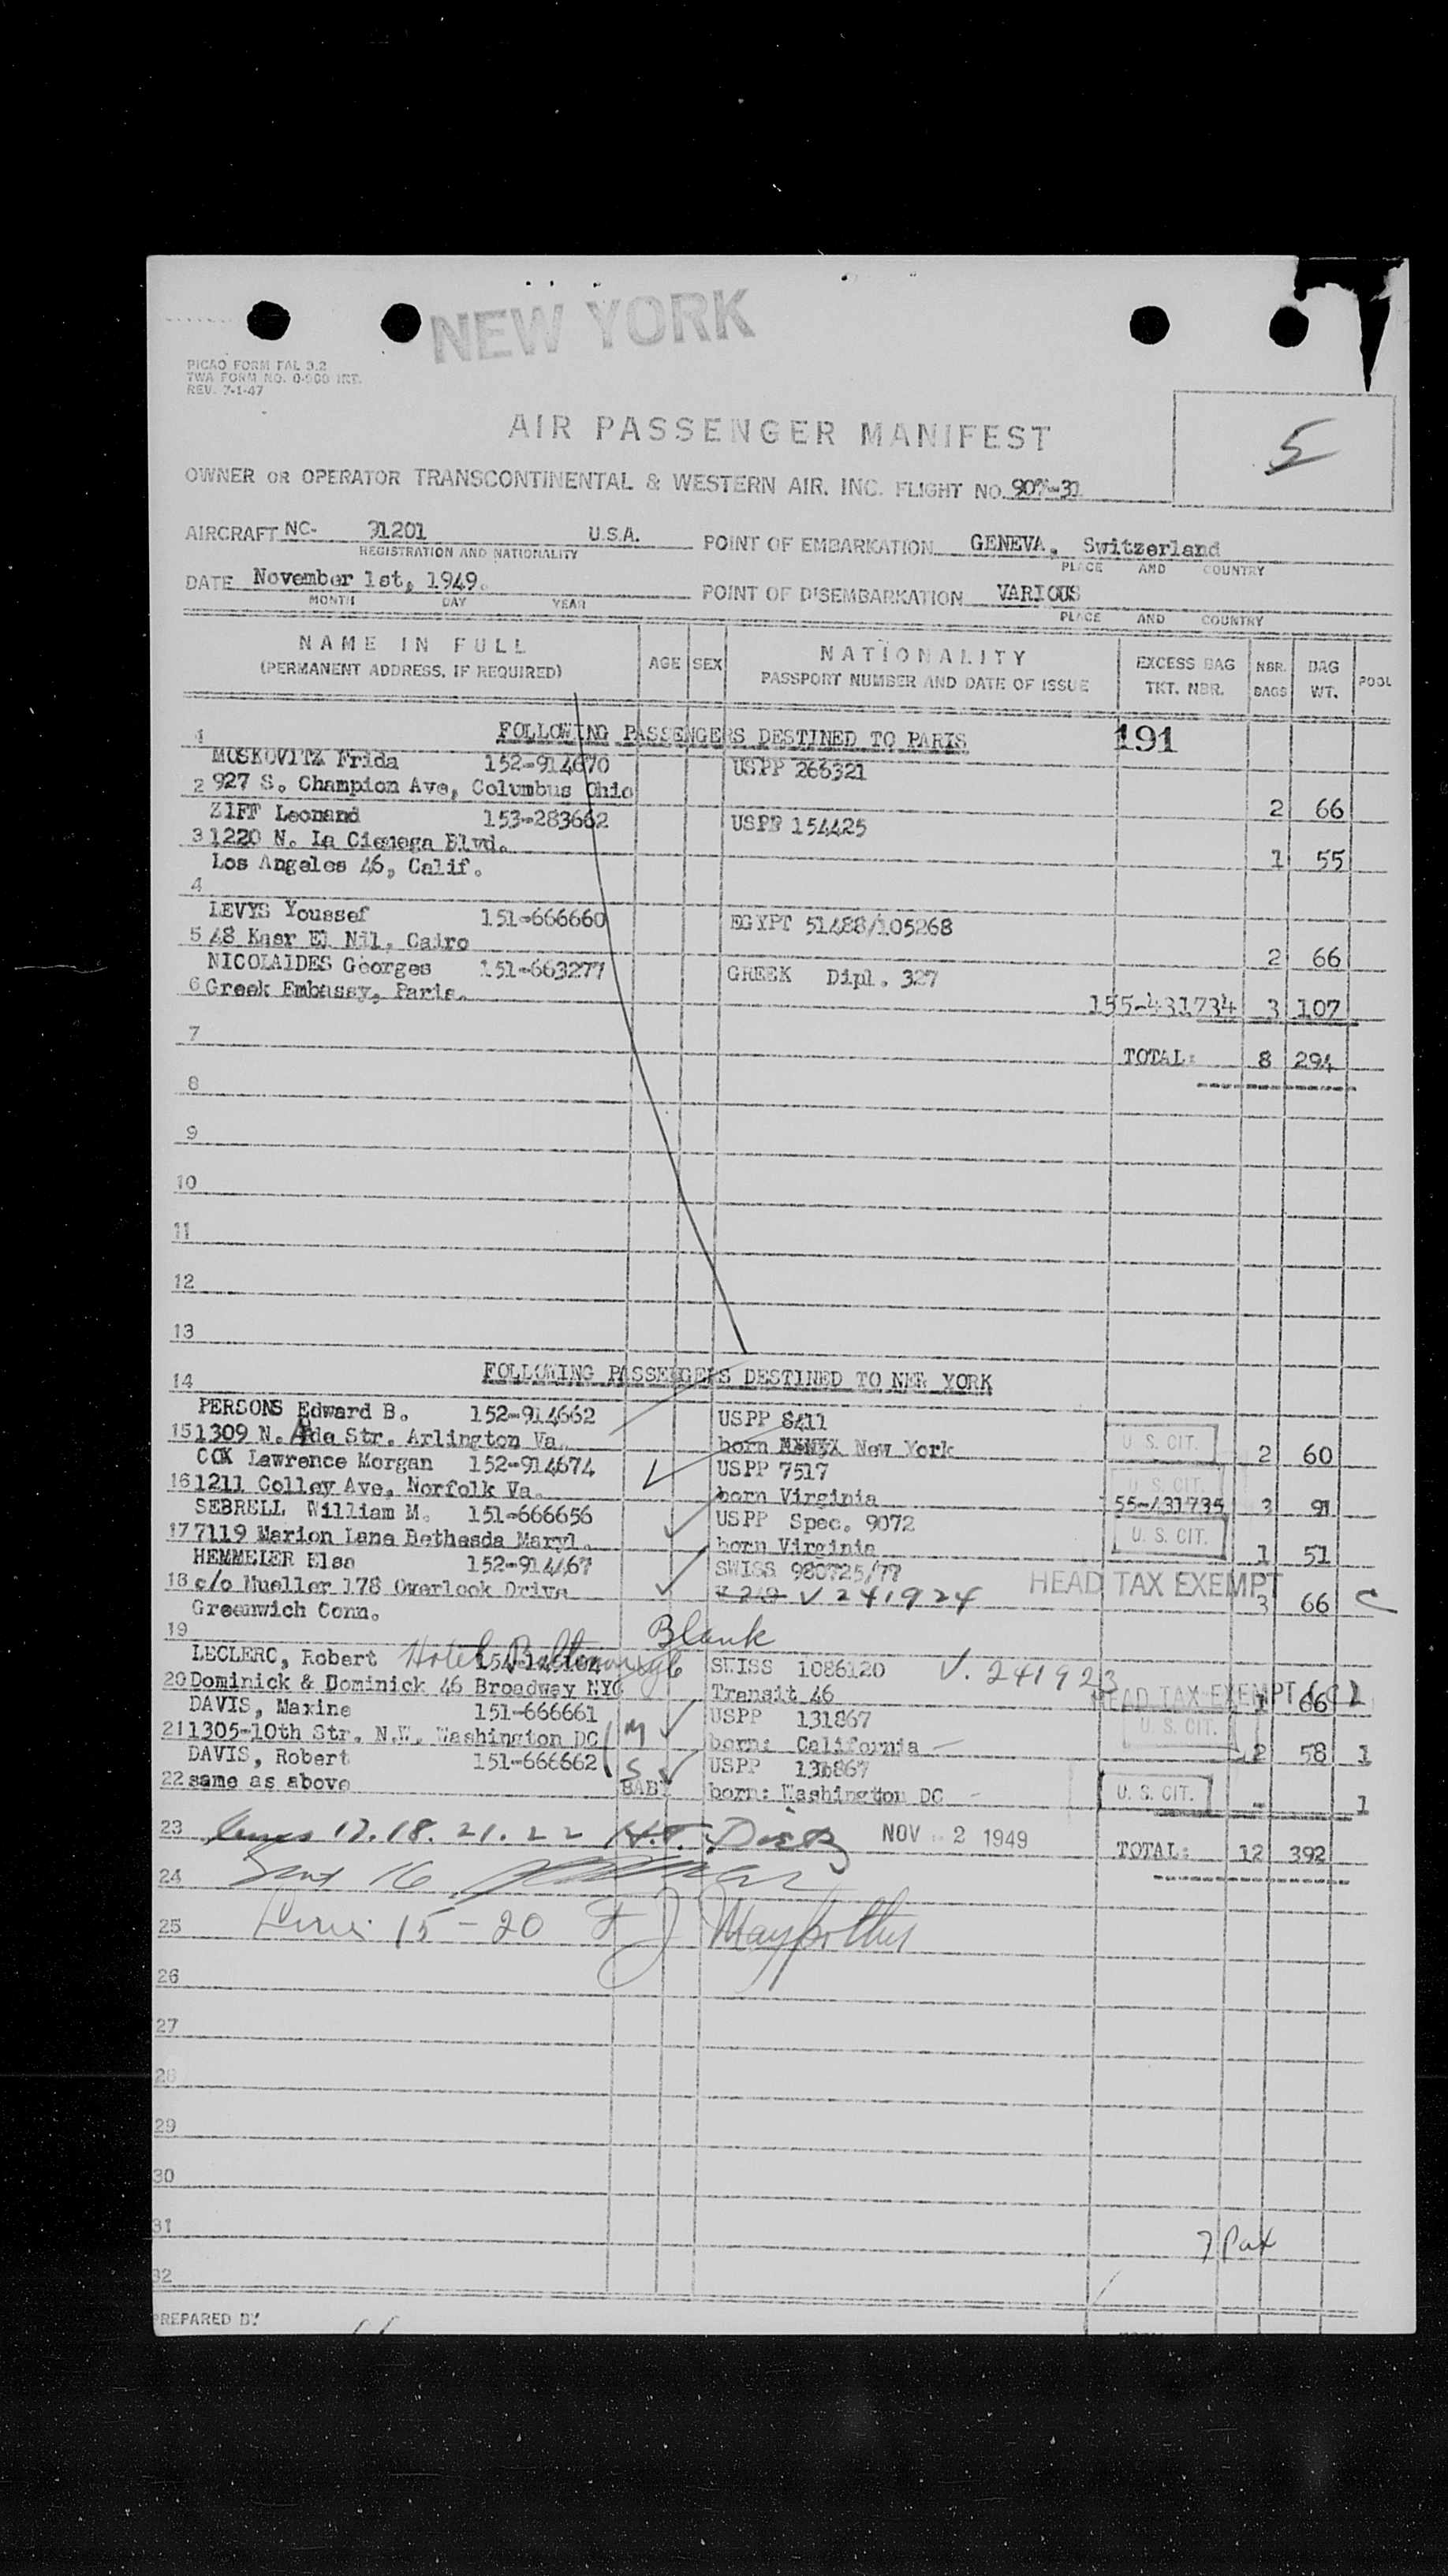 NEW YORK
PICAO FORM FAL 3.2
TWA FORM NO. 0-900 INT.
REV. 7-1-47
5
AIR PASSENGER MANIFEST
OWNER OR OPERATOR TRANSCONTINENTAL & WESTERN AIR. INC. FLIGHT NO.
AIRCRAFT NC- 91201 U.S.A. POINT OF EMBARKATION GENEVA, Switzerland
REGISTRATION AND NATIONALITY PLACE AND COUNTRY
DATE November 1st, 1949. POINT OF DISEMBARKATION VARIOUS
MONTH DAY YEAR PLACE AND COUNTRY
NAME IN FULL AGE SEX NATIONALITY EXCESS BAG NBR. BAG POOL
(PERMANENT ADDRESS, IF REQUIRED) PASSPORT NUMBER AND DATE OF ISSUE TKT. NBR. BAGS WT.
1 FOLLOWING PASSENGERS DESTINED TO PARIS 191
MOSKOVITZ Frida 152-914670 USPP 266321
2 927 S. Champion Ave, Columbus Ohio 2 66
ZIFF Leonard 153-283662 USPP 154425
3 1220 N. La Cienega Blvd. 1 55
Los Angeles 46, Calif.
4
LEVYS Youssef 151-666660 EGYPT 51488/105268
5 48 Kasr El Nil, Cairo 2 66
NICOLAIDES Georges 151-663277 GREEK Dipl. 327
6 Greek Embassy, Paris. 155-431734 3 107
7 TOTAL: 8 294
8
9
10
11
12
13
14 FOLLOWING PASSENGERS DESTINED TO NEW YORK
PERSONS Edward B. 152-914662 USPP 8411
15 1309 N. Str. Arlington Va. born New York U. S. CIT. 2 60
COX Lawrence Morgan 152-914674 USPP 7517 U. S. CIT.
16 1211 Colley Ave, Norfolk Va. born Virginia 55-431735 3 91
SEBRELL William M. 151-666656 USPP Spec. 9072 U. S. CIT.
17 7119 Marion Lane Bethesda Maryl. born Virginia 1 51
HEMMELER Elsa 152-914467 SWISS 980725/77 HEAD TAX EXEMPT
18 c/o Mueller 178 Overlook Drive V 241924 3 66 C
Greenwich Conn.
19 Blank
LECLERC, Robert Hotel SWISS 1086120 V. 241923
20 Dominick & Dominick 46 Broadway NYC Transit 46 HEAD TAX EXEMPT (C) 1 66 1
DAVIS, Maxine 151-666661 M USPP 131867 U. S. CIT.
21 1305-10th Str. N.W. Washington DC born: California 2 58 1
DAVIS, Robert 151-666662 S USPP 131867
22 same as above BABY born: Washington DC U. S. CIT. - 1
23 Lines 17. 18. 21. 22 H.T. Dietz NOV 2 1949 TOTAL: 12 392
24 16
25 15 - 20 F J
26
27
28
29
30
31 7 Pax
32
PREPARED BY